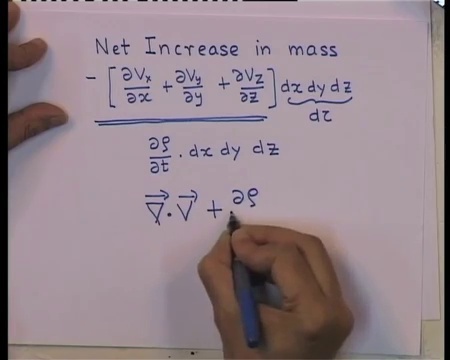 Net Increase in mass
- [ ∂Vx/∂x + ∂Vy/∂y + ∂Vz/∂z ] dx dy dz
dτ
∂ρ/∂t . dx dy dz
∇⃗ . V⃗ + ∂ρ